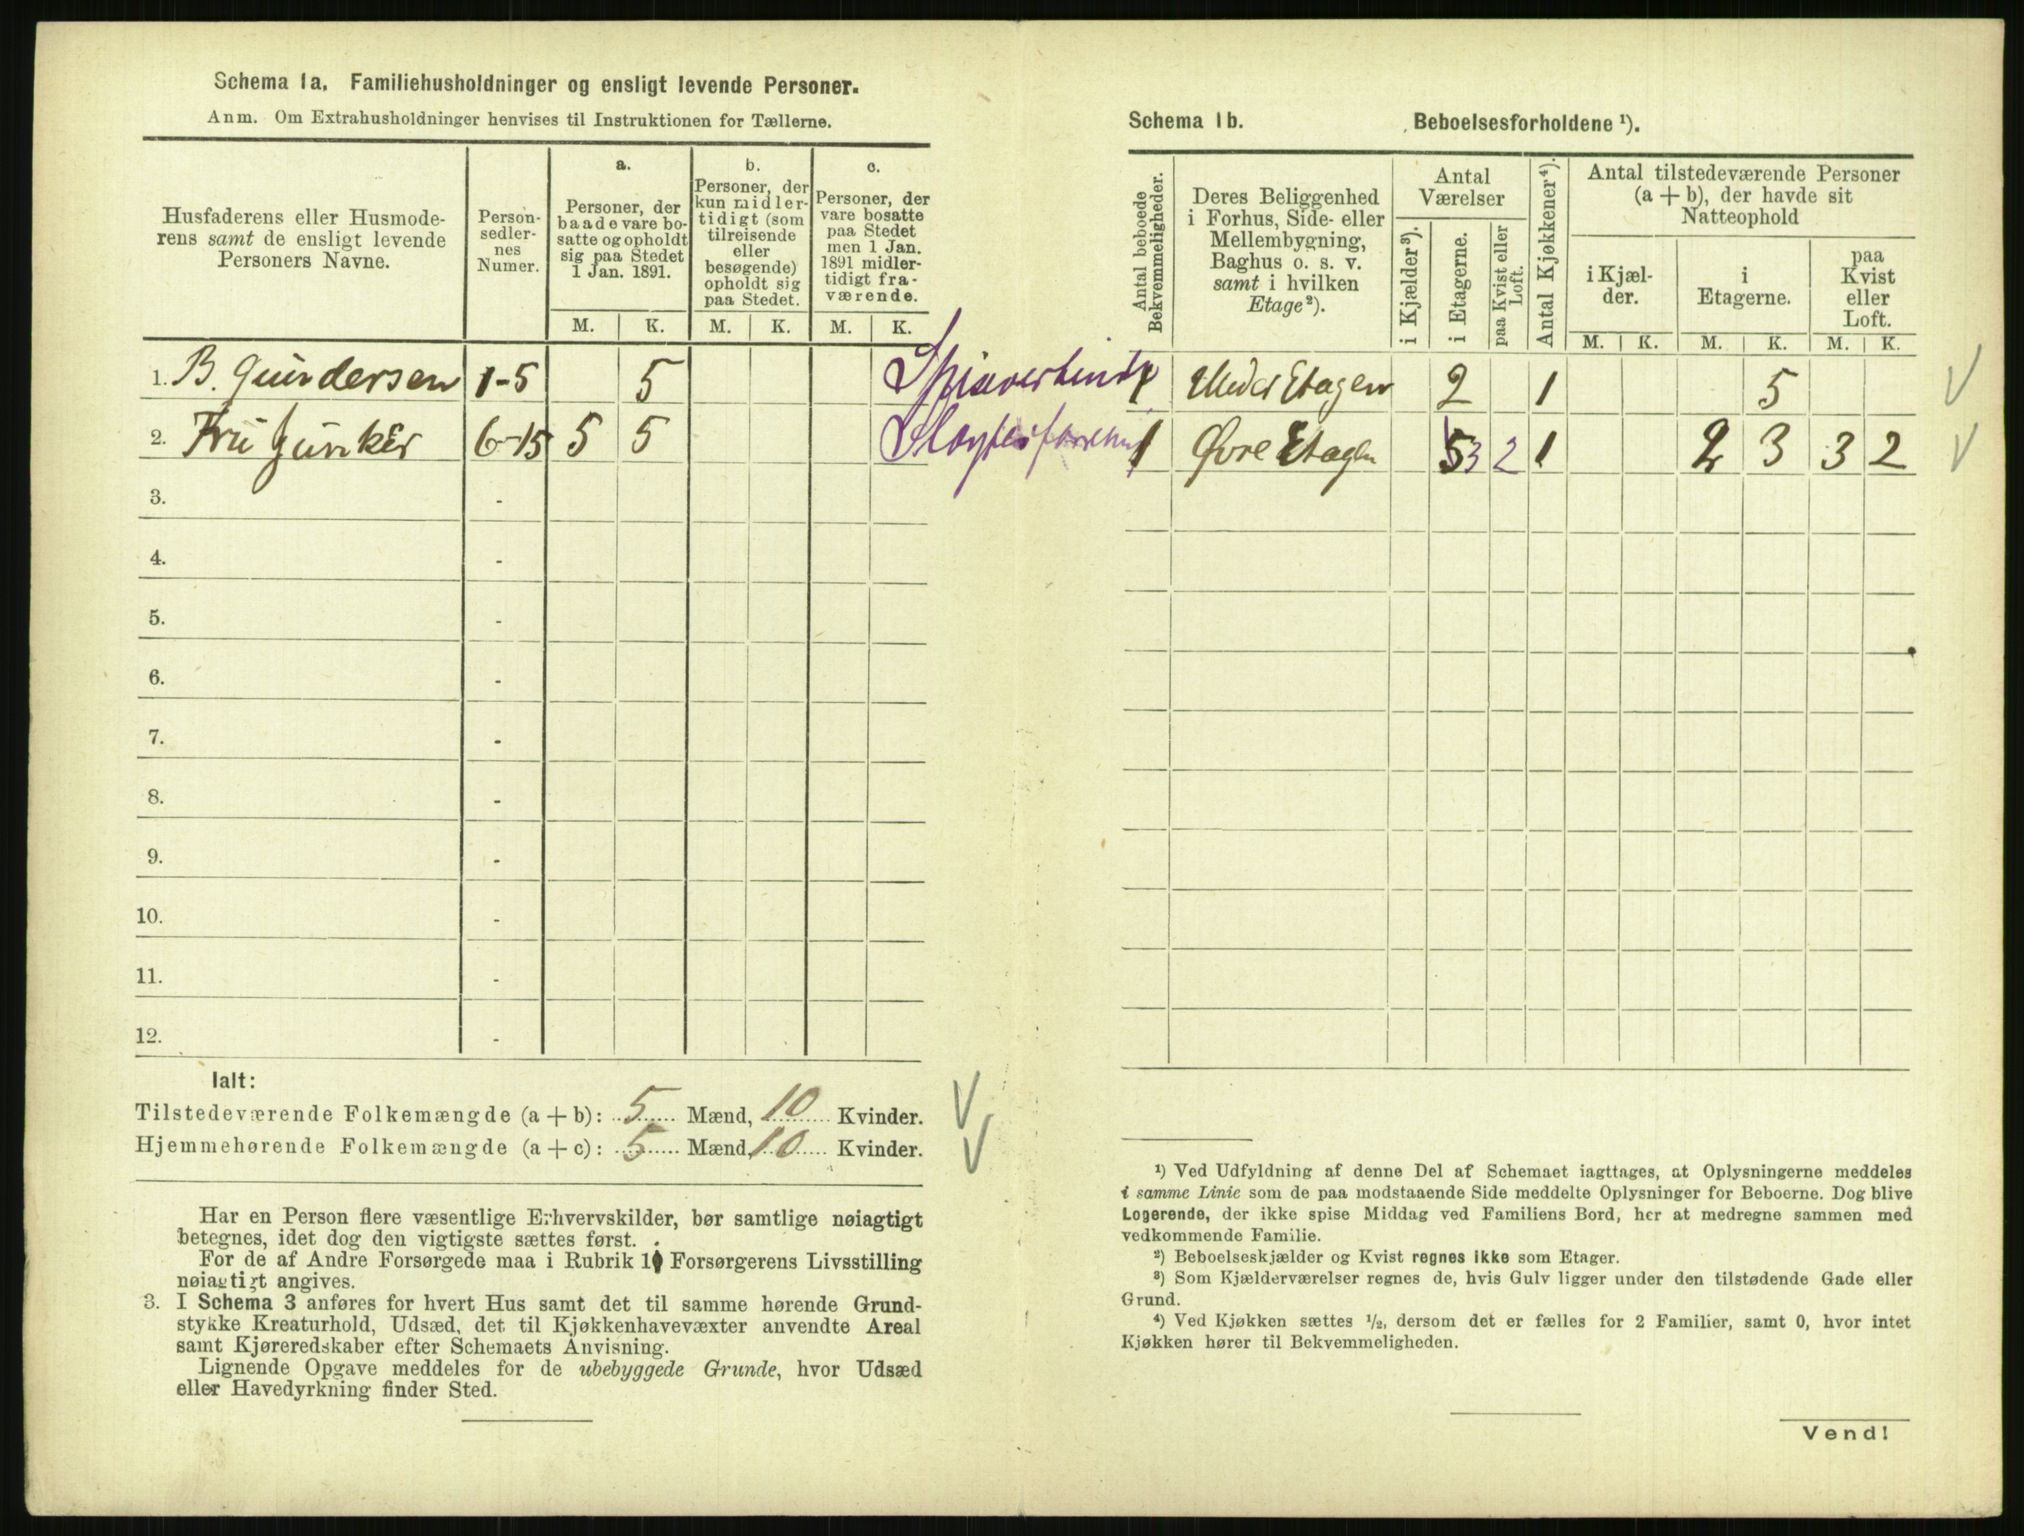 Schema 1a. Familiehusholdninger og ensligt levende Personer.
Anm. Om Extrahusholdninger henvises til Instruktionen for Tællerne.
Husfaderens eller Husmode-
rens samt de ensligt levende
Personers Navne.
Person-
sedler-
nes
Numer.
a.
Personer, der
baade vare bo-
satte og opholdt
sig paa Stedet
1 Jan. 1891.
b.
Personer, der
kun midler-
tidigt (som
tilreisende
eller
besøgende)
opholdt sig
paa Stedet.
c.
Personer, der
vare bosatte
paa Stedet
men 1 Jan.
1891 midler-
tidigt fra-
værende.
M. K. M. K. M. K.
1. B. Gundersen 1-5 5
2. Fru Junker 6-15 5 5
3. -
4. -
5. -
6. -
7. -
8. -
9. -
10. -
11. -
12. -
Ialt:
Tilstedeværende Folkemængde (a + b): 5 Mænd, 10 Kvinder.
Hjemmehørende Folkemængde (a + c): 5 Mænd, 10 Kvinder.
Har en Person flere væsentlige Erhvervskilder, bør samtlige nøiagtigt
betegnes, idet dog den vigtigste sættes først.
For de af Andre Forsørgede maa i Rubrik 10 Forsørgerens Livsstilling
nøiagtigt angives.
3. I Schema 3 anføres for hvert Hus samt det til samme hørende Grund-
stykke Kreaturhold, Udsæd, det til Kjøkkenhavevæxter anvendte Areal
samt Kjøreredskaber efter Schemaets Anvisning.
Lignende Opgave meddeles for de ubebyggede Grunde, hvor Udsæd
eller Havedyrkning finder Sted.
Schema 1b. Beboelsesforholdene ¹).
Antal beboede
Bekvemmeligheder.
Deres Beliggenhed
i Forhus, Side- eller
Mellembygning,
Baghus o. s. v.
samt i hvilken
Etage²).
Antal
Værelser
i Kjælder³).
i Etagerne.
paa Kvist eller
Loft.
Antal Kjøkkener⁴).
Antal tilstedeværende Personer
(a + b), der havde sit
Natteophold
i Kjæl-
der.
i
Etagerne.
paa
Kvist
eller
Loft.
M. K. M. K. M. K.
1 Under Etagen 2 1 5
1 Øvre Etagen 5 3 2 1 2 3 3 2
¹) Ved Udfyldning af denne Del af Schemaet iagttages, at Oplysningerne meddeles
i samme Linie som de paa modstaaende Side meddelte Oplysninger for Beboerne. Dog blive
Logerende, der ikke spise Middag ved Familiens Bord, her at medregne sammen med
vedkommende Familie.
²) Beboelseskjælder og Kvist regnes ikke som Etager.
³) Som Kjælderværelser regnes de, hvis Gulv ligger under den tilstødende Gade eller
Grund.
⁴) Ved Kjøkken sættes ½, dersom det er fælles for 2 Familier, samt 0, hvor intet
Kjøkken hører til Bekvemmeligheden.
Vend!